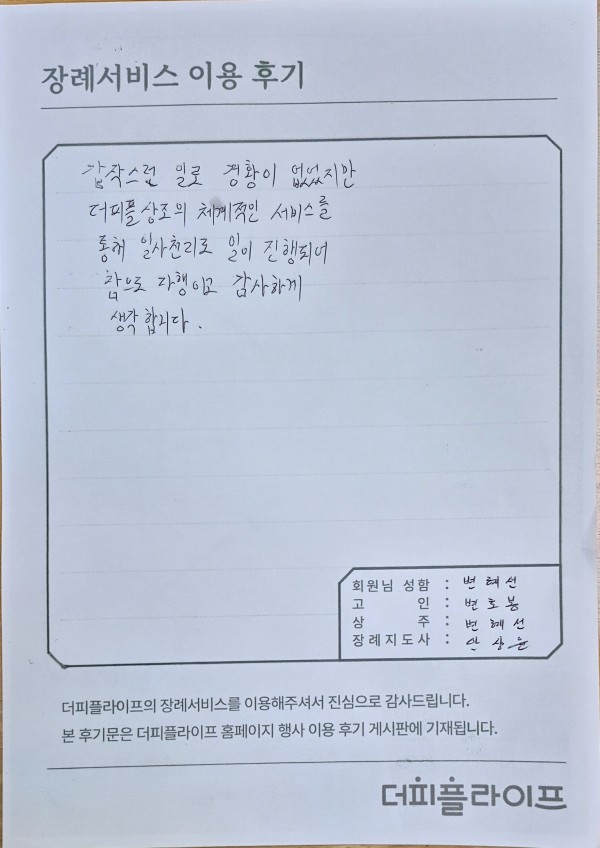 장례서비스 이용 후기
갑작스런 일로 경황이 없었지만
더피플상조의 체계적인 서비스를
통해 일사천리로 일이 진행되어
참으로 다행이고 감사하게
생각합니다.
회원님 성함 : 변혜선
고 인 : 변호봉
상 주 : 변혜선
장례지도사 : 안상윤
더피플라이프의 장례서비스를 이용해주셔서 진심으로 감사드립니다.
본 후기문은 더피플라이프 홈페이지 행사 이용 후기 게시판에 기재됩니다.
더피플라이프